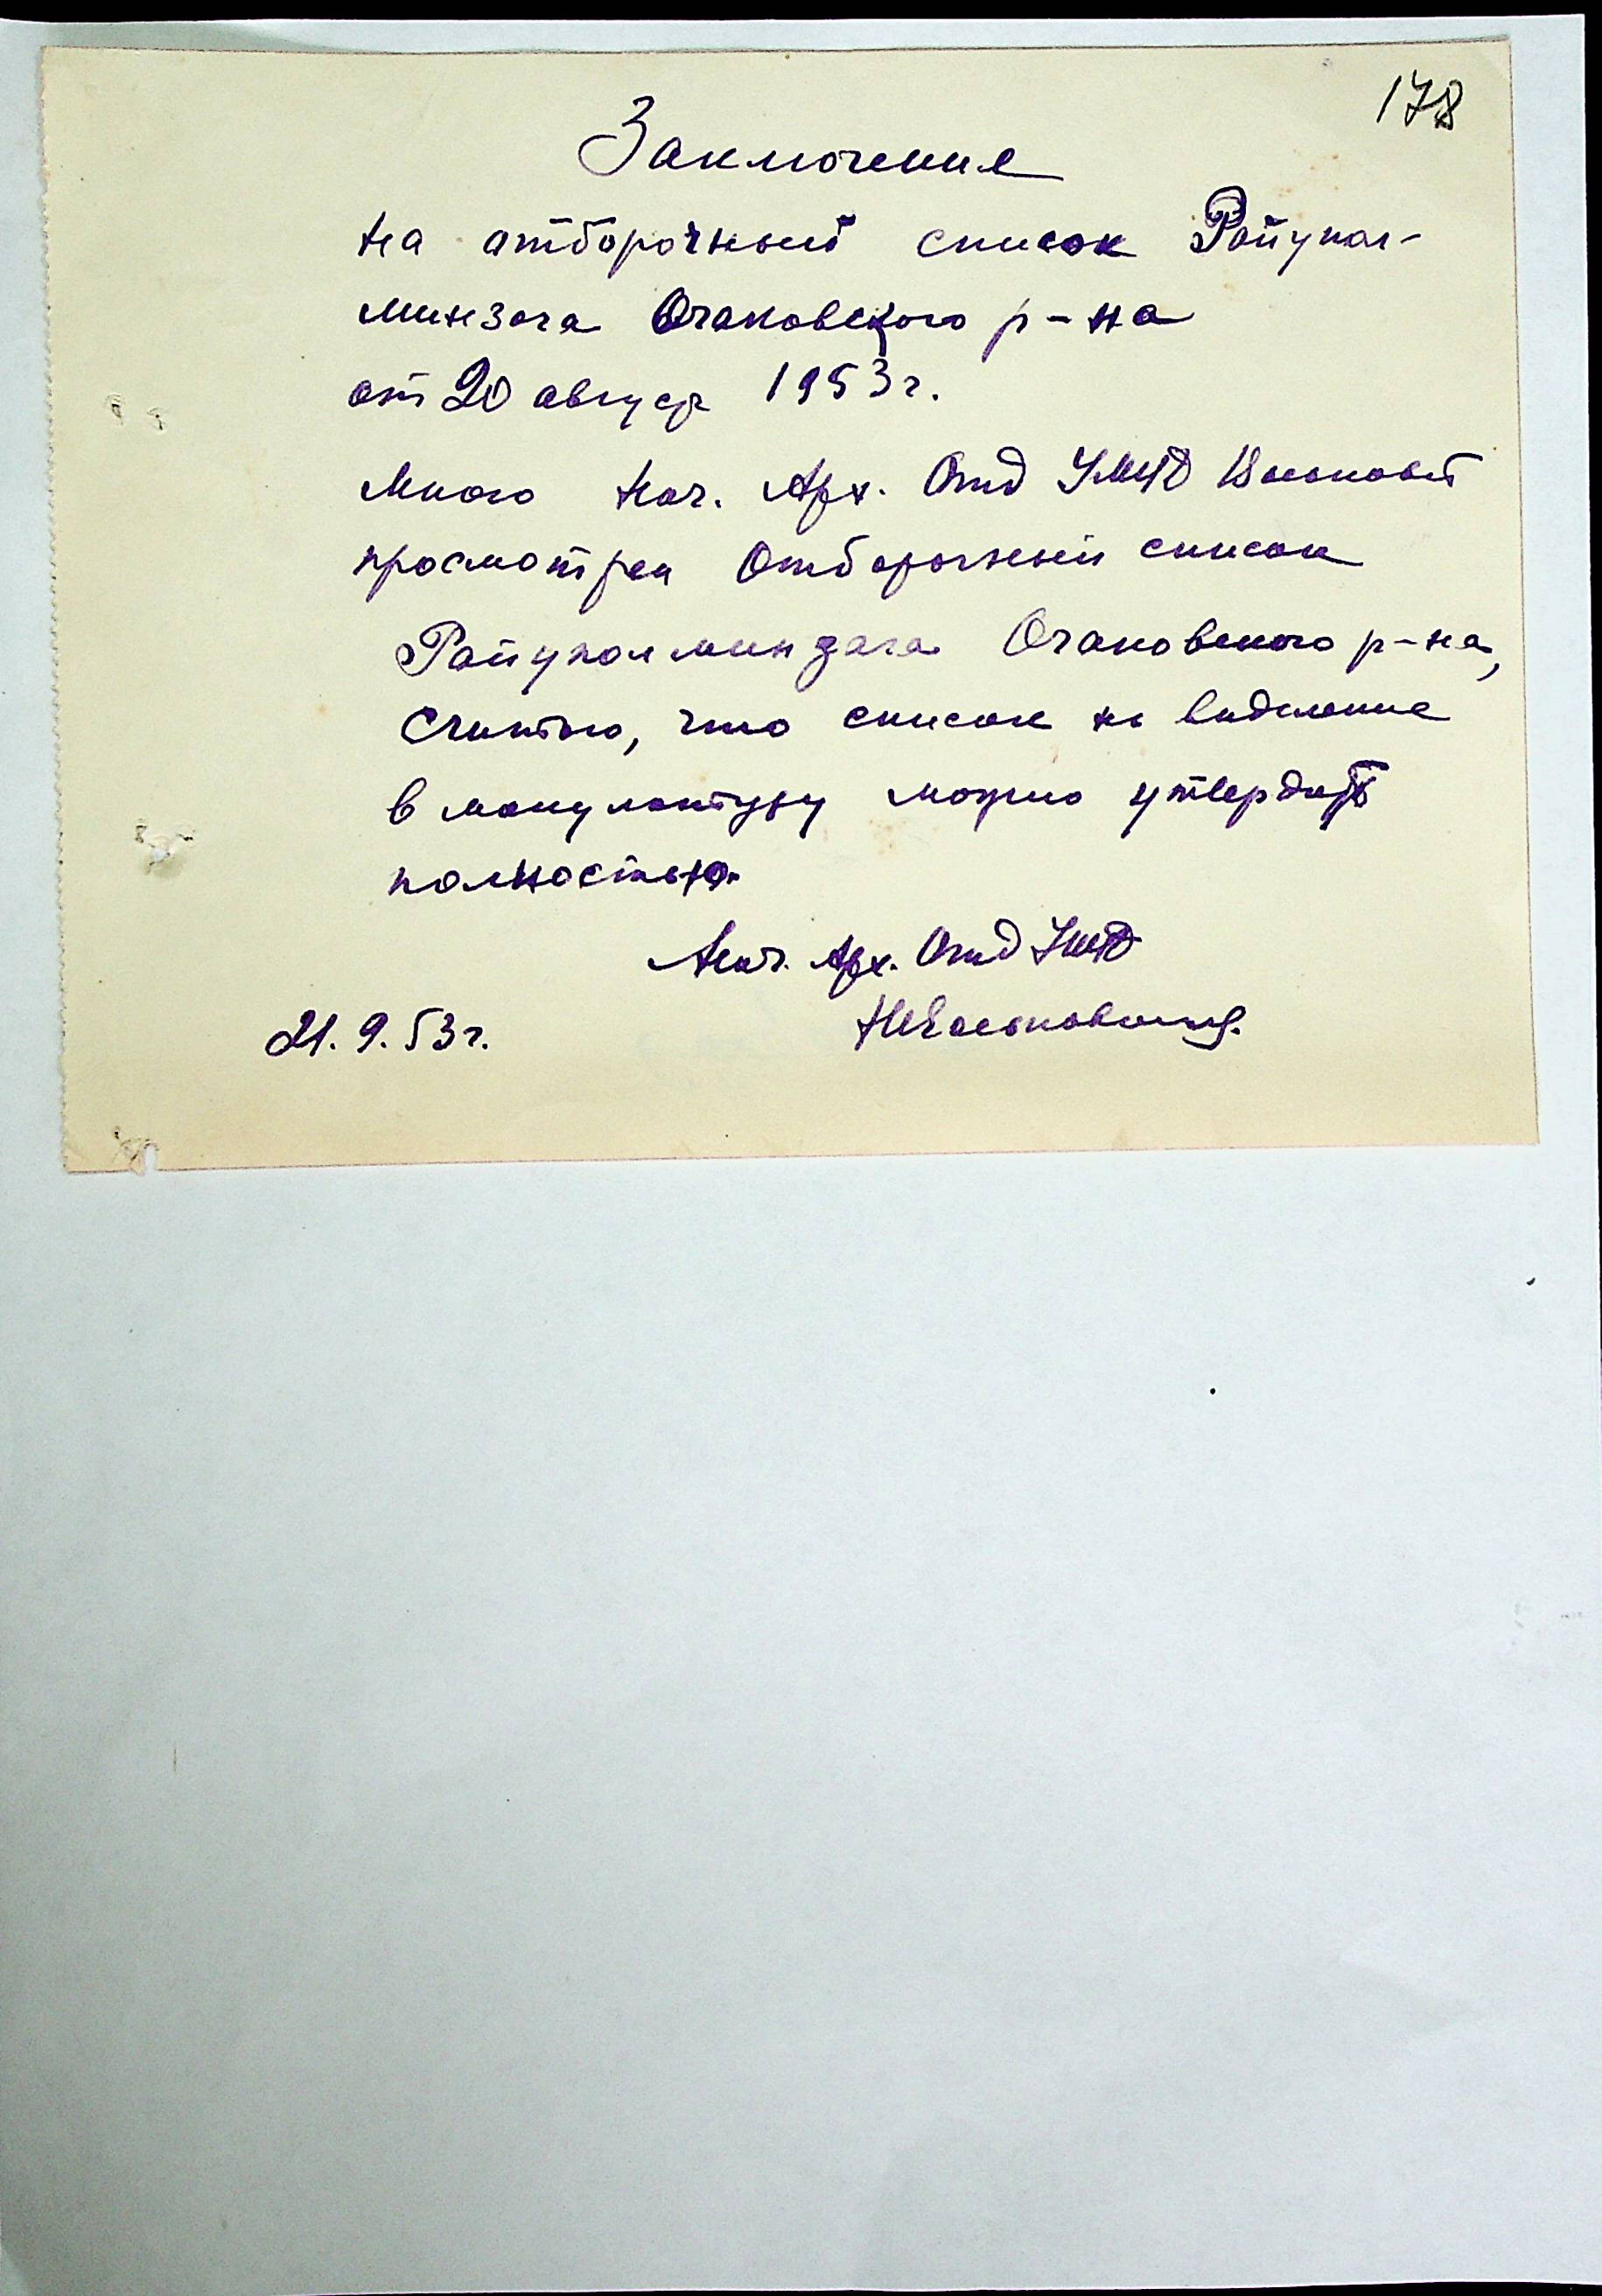 178
Заключение
на отборочный список Райупол-
минзага Очаковского р-на
от 20 август 1953 г.
Мною Нач. Арх. Отд УМВД
просмотрен Отборочный список
Райуполминзага Очаковского р-на,
Считаю, что список на виделение
в макулатуру можно утвердить
полностью.
Нач. Арх. Отд УМВД
21.9.53 г.